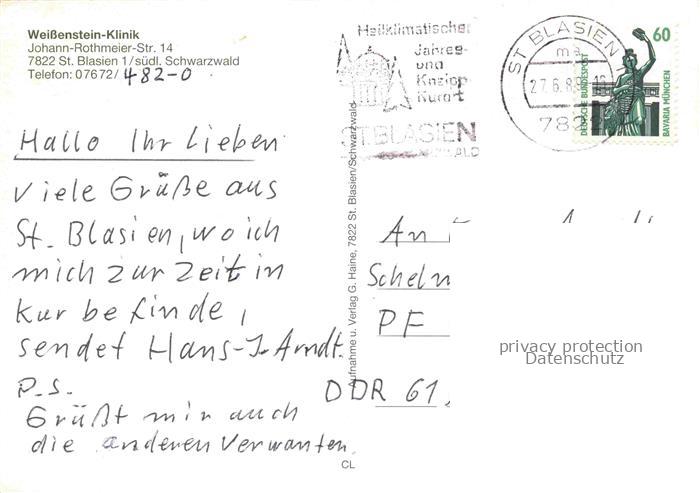 Weißenstein-Klinik
Johann-Rothmeier-Str. 14
7822 St. Blasien 1/südl. Schwarzwald
Telefon: 07672/482-0
Hallo Ihr Lieben
Viele Grüße aus
St. Blasien, wo ich
mich zur Zeit in
Kur befinde,
sendet Hans-J. Arndt.
P.S.
Grüßt mir auch
die anderen Verwanten.
Aufnahme u. Verlag G. Haine, 7822 St. Blasien/Schwarzwald
CL
Heilklimatischer
Jahres-
und
Kneipp
Kurort
ST BLASIEN
ST BLASIEN
27.6.8
60
DEUTSCHE BUNDESPOST
BAVARIA MÜNCHEN
An
Scheln
PF
DDR 61,
privacy protection
Datenschutz